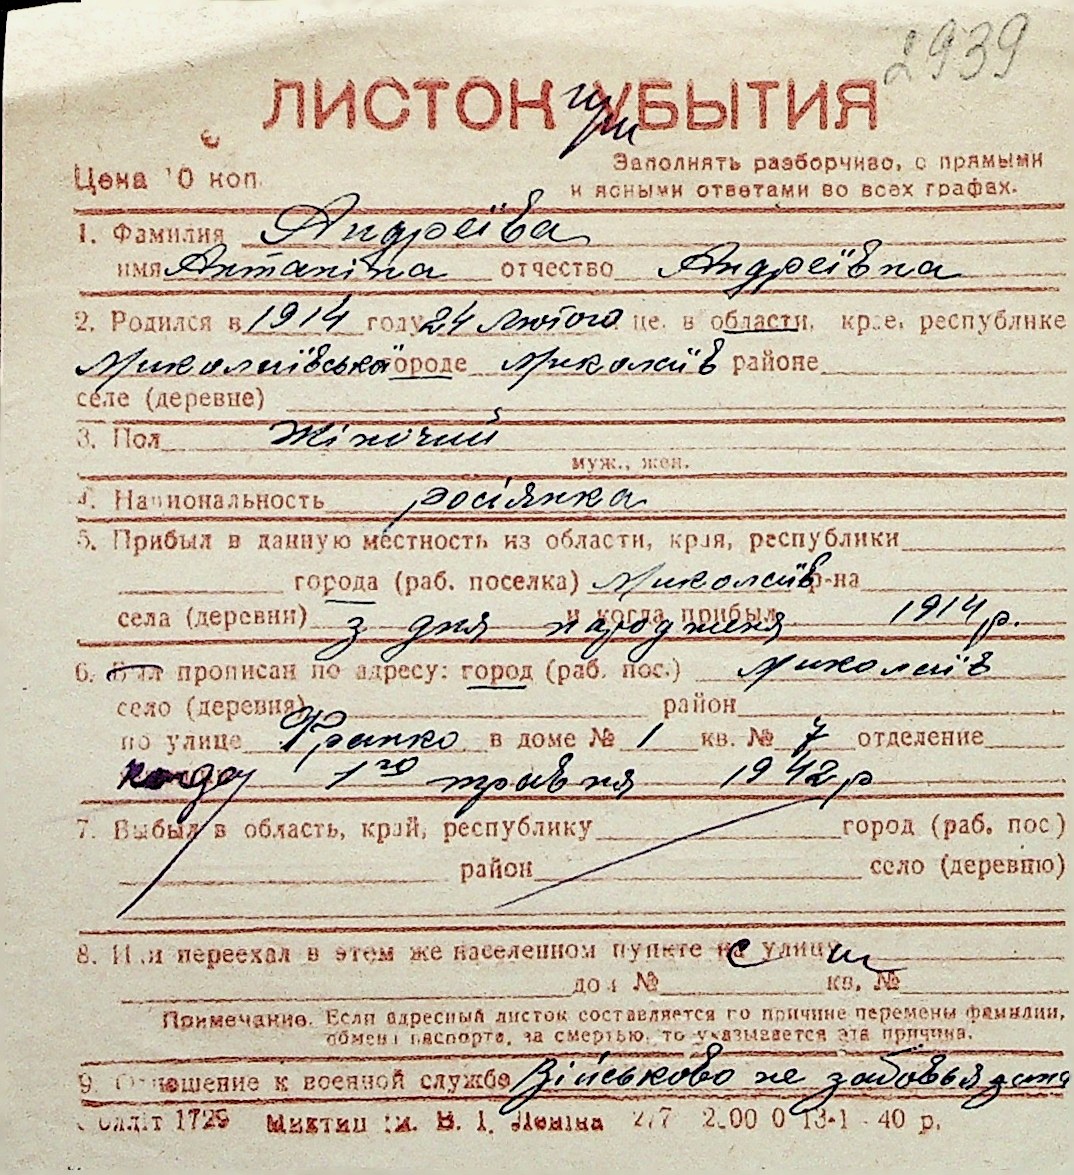 2939
ЛИСТОК при УБЫТИЯ
Цена 10 коп.
Заполнять разборчиво, с прямыми
и ясными ответами во всех графах.
1. Фамилия Андреїва
имя Антаніна отчество Андреївна
2. Родился в 1914 году 24 Лютого це. в области, крае, республике
Миколаївській городе Миколаїв районе
селе (деревне)
3. Пол Жіночий
муж., жен.
4. Национальность росіянка
5. Прибыл в данную местность из области, края, республики
города (раб. поселка) Миколаїв р-на
села (деревни) и когда прибыл 1914 р.
з дня народженя
6. Был прописан по адресу: город (раб. пос.) Миколаїв
село (деревня) район
по улице Франко в доме № 1 кв. № 7 отделение
когда 1го травня 1942 р
7. Выбыл в область, край, республику город (раб. пос)
район село (деревню)
8. Или переехал в этом же населенном пункте с улицы
дом № кв. №
Примечание. Если адресный листок составляется по причине перемены фамилии,
обмена паспорта, за смертью, то указывается эта причина.
9. Отношение к военной службе Військово не забовьязана
Облліт 1729 Миктип ім. В. І. Леніна 277 2.00 0 13-1 - 40 р.